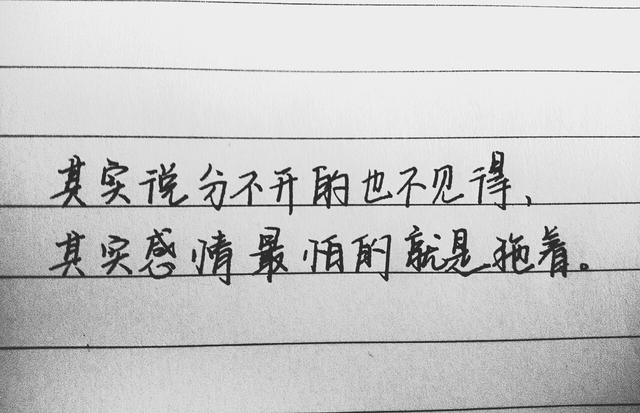 其实说分不开的也不见得、
其实感情最怕的就是拖着。